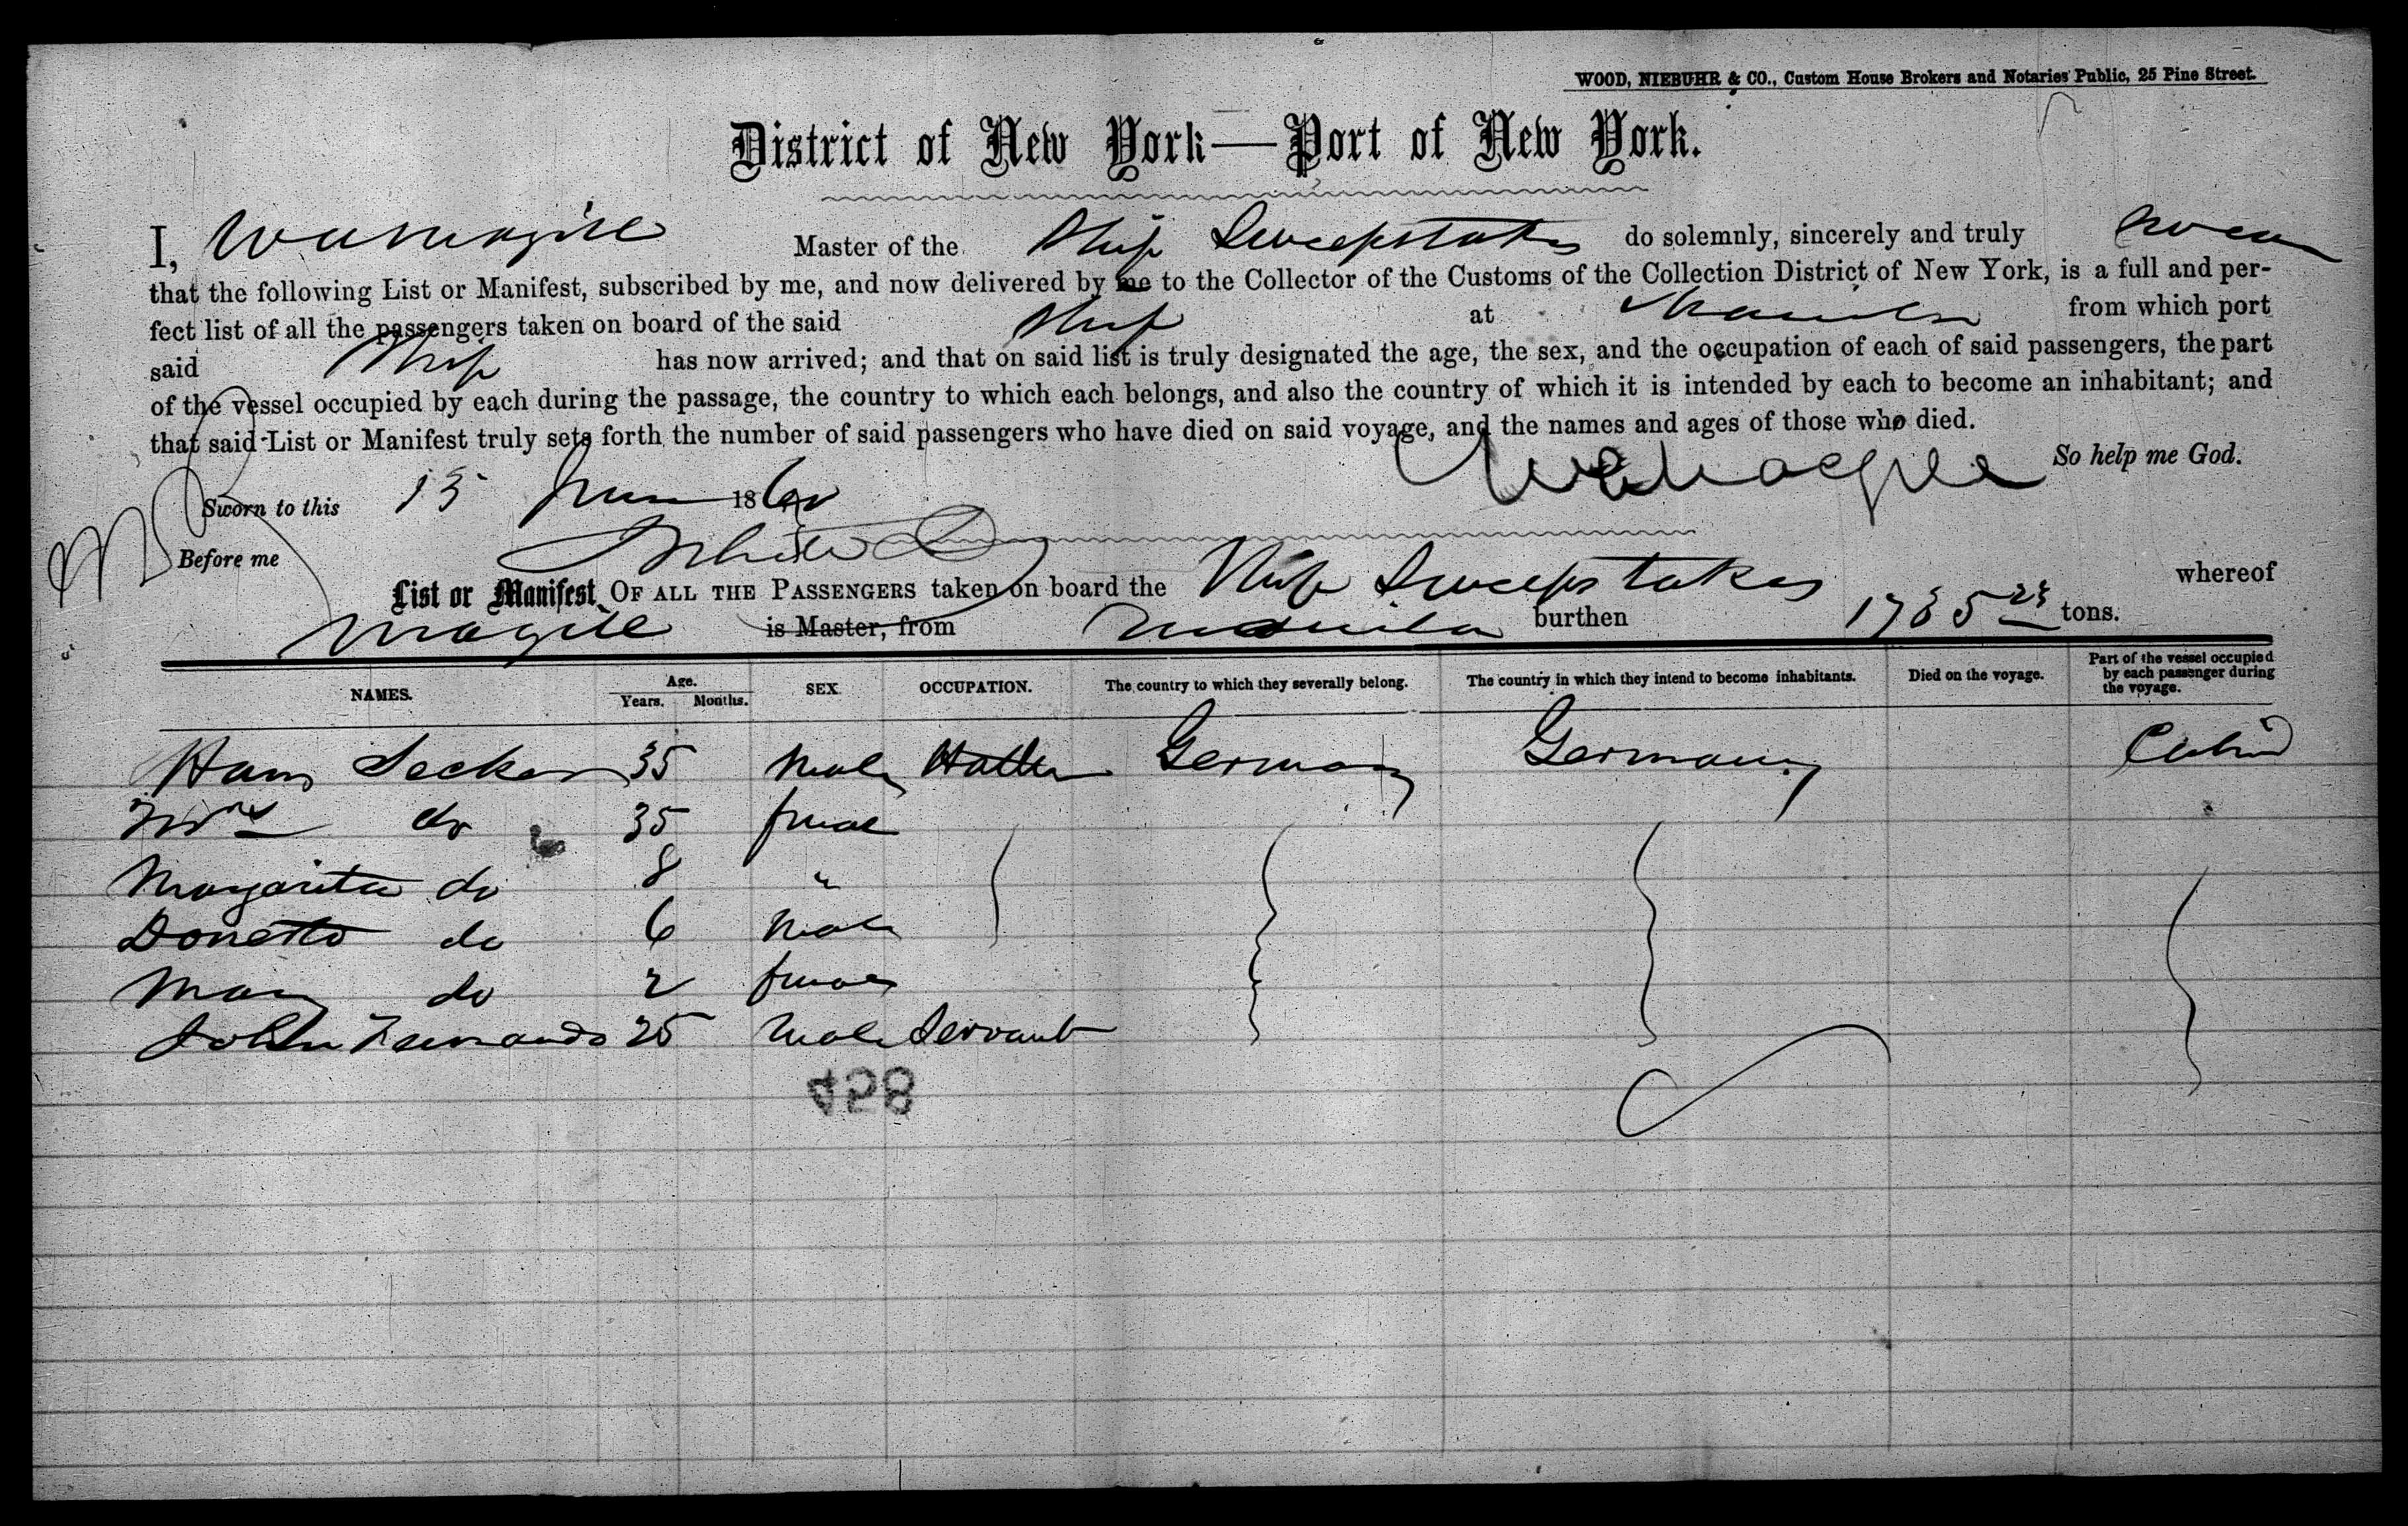 WOOD, NIEBUHR & CO., Custom House Brokers and Notaries Public, 25 Pine Street.
District of New York—Port of New York.
I, Wm Magill Master of the Ship Sweepstakes do solemnly, sincerely and truly swear
that the following List or Manifest, subscribed by me, and now delivered by me to the Collector of the Customs of the Collection District of New York, is a full and per-
fect list of all the passengers taken on board of the said Ship at Manila from which port
said Ship has now arrived; and that on said list is truly designated the age, the sex, and the occupation of each of said passengers, the part
of the vessel occupied by each during the passage, the country to which each belongs, and also the country of which it is intended by each to become an inhabitant; and
that said List or Manifest truly sets forth the number of said passengers who have died on said voyage, and the names and ages of those who died.
So help me God.
Sworn to this 15 June 186
Before me
List or Manifest OF ALL THE PASSENGERS taken on board the Ship Sweepstakes whereof
Magill is Master, from Manila burthen 1735 23 tons.
NAMES. Age. Years. Months. SEX. OCCUPATION. The country to which they severally belong. The country in which they intend to become inhabitants. Died on the voyage. Part of the vessel occupied by each passenger during the voyage.
Hans Secker 35 Male Hatter Germany Germany Cabin
Mrs do 35 female
Margarita do 8 "
Donetto do 6 Male
Mary do 2 female
John Fernando 25 Male Servant
458